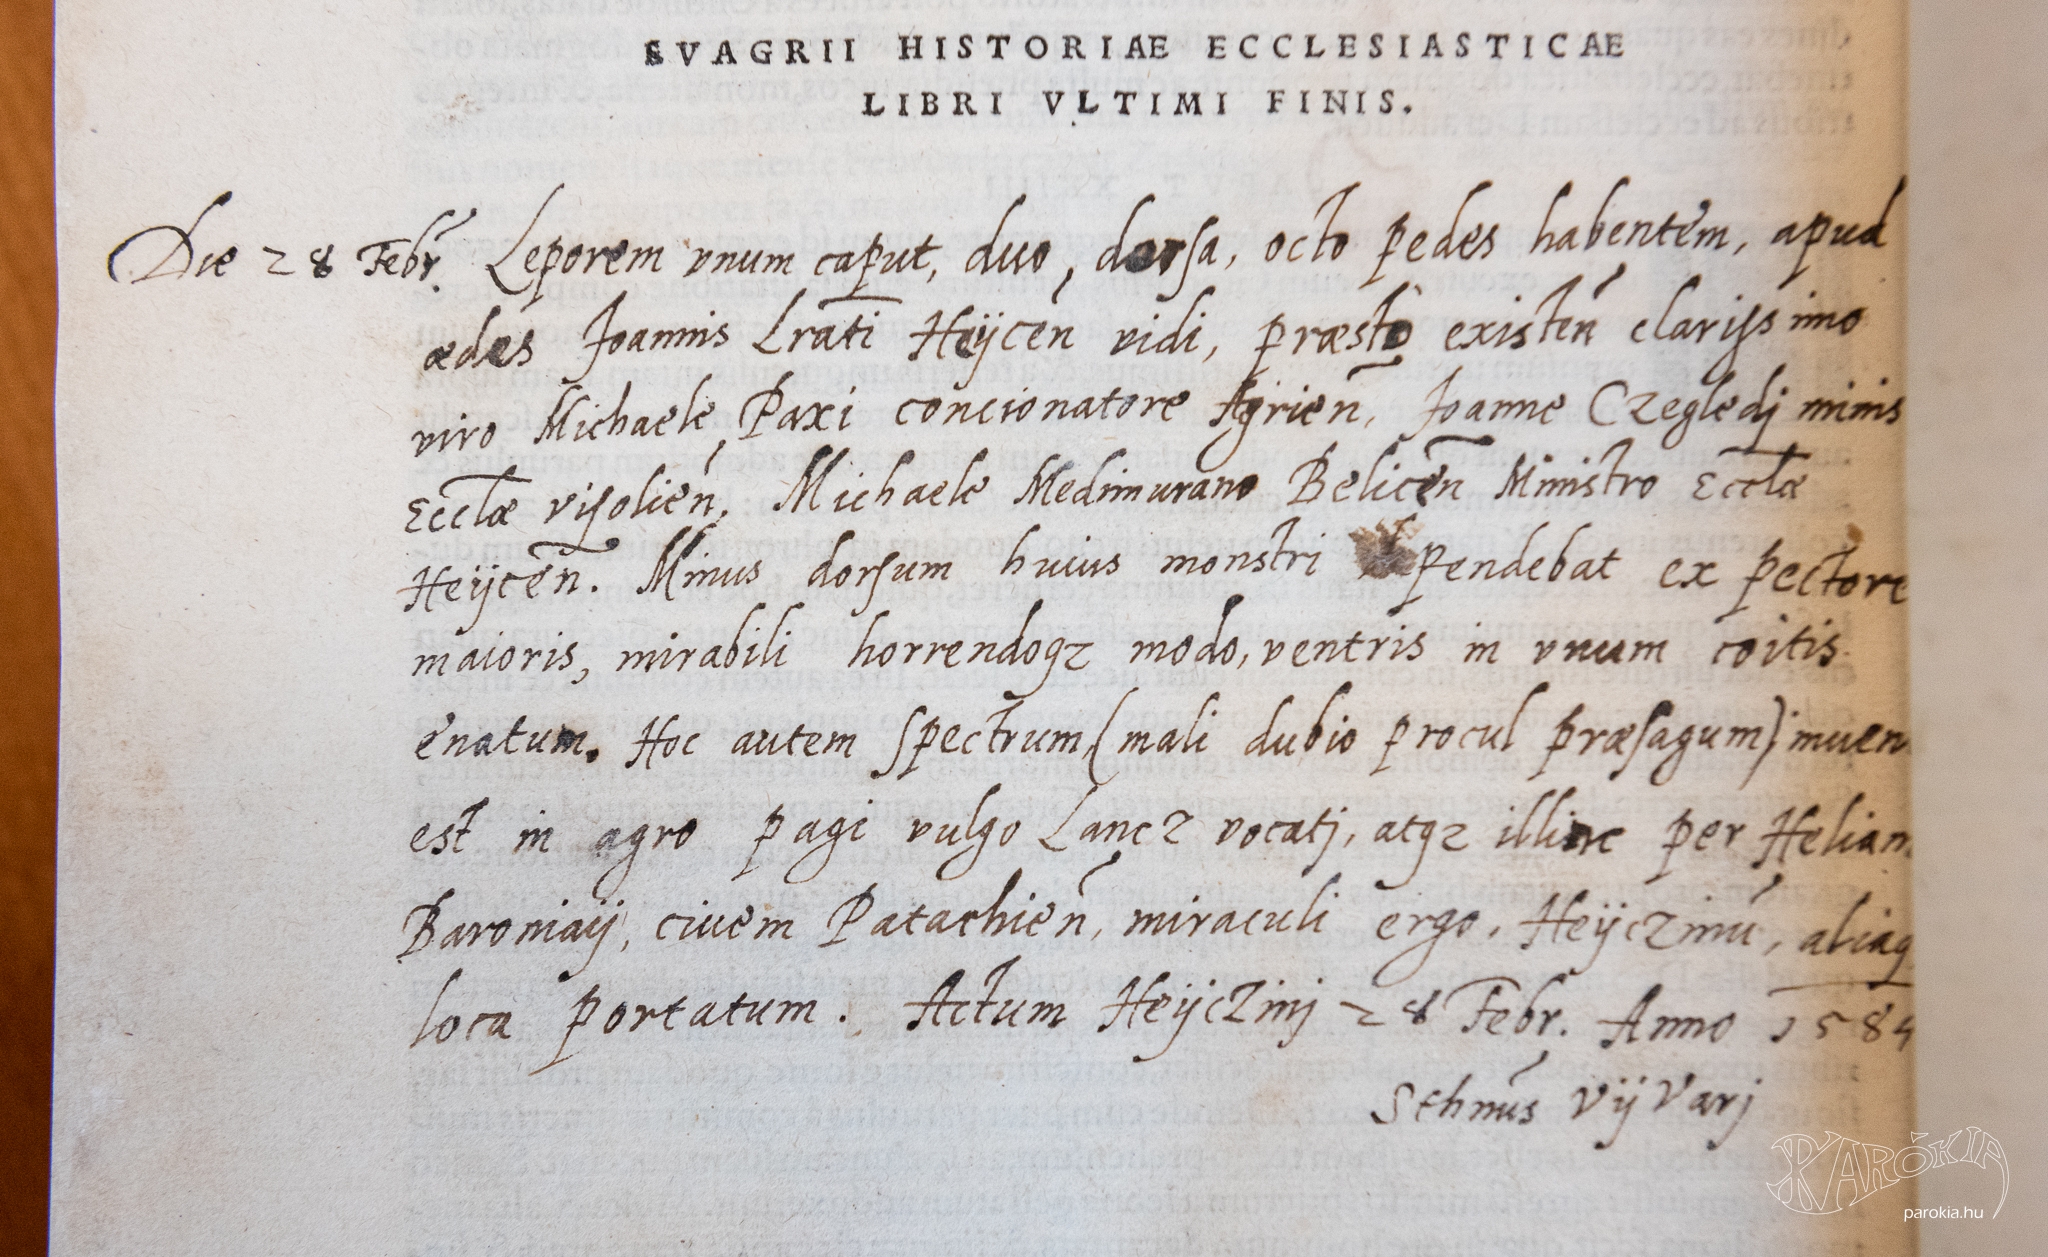 EVAGRII HISTORIAE ECCLESIASTICAE
LIBRI VLTIMI FINIS.
Die 28 Febr. Leporem vnum caput, duo, dorsa, octo pedes habentem, apud
ædes Joannis Lrati Heÿcen vidi, præsto existen clarissimo
viro Michaele Paxi concionatore Agrien, Joanne Czegledj minis
Ecclæ visolien, Michaele Medimurano Belicen Ministro Ecclæ
Heÿcen. Minus dorsum huius monstri pendebat ex pectore
maioris, mirabili horrendoqz modo, ventris in vnum coitis
enatum. Hoc autem spectrum (mali dubio procul præsagum) inuen
est in agro pagi vulgo Lancz vocatj, atqz illinc per Heliam
Baroniaÿ, ciuem Patachien, miraculi ergo, Heÿczinu, aliaq
loca portatum. Actum Heÿczinj 28 Febr. Anno 1584
VijVarj
PARÓKIA
parokia.hu